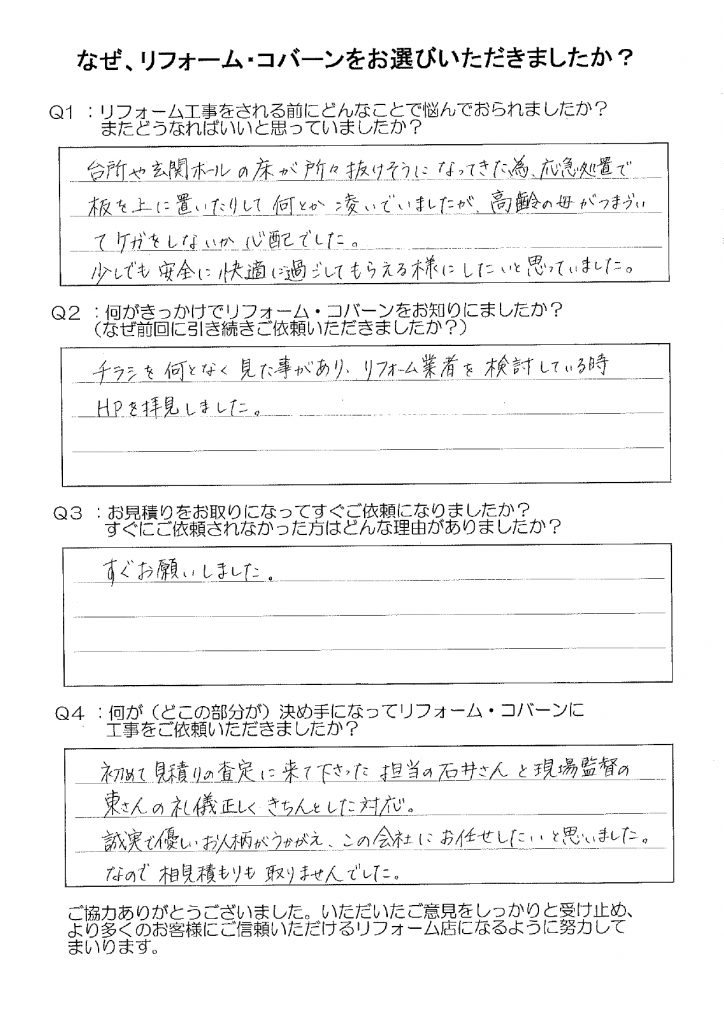 なぜ、リフォーム・コバーンをお選びいただきましたか？
Q1 ：リフォーム工事をされる前にどんなことで悩んでおられましたか？
またどうなればいいと思っていましたか？
台所や玄関ホールの床が所々抜けそうになってきた為、応急処置で
板を上に置いたりして何とか凌いでいましたが、高齢の母がつまづい
てケガをしないか心配でした。
少しでも安全に快適に過ごしてもらえる様にしたいと思っていました。
Q2 ：何がきっかけでリフォーム・コバーンをお知りにましたか？
（なぜ前回に引き続きご依頼いただきましたか？）
チラシを何となく見た事があり、リフォーム業者を検討している時
HPを拝見しました。
Q3 ：お見積りをお取りになってすぐご依頼になりましたか？
すぐにご依頼されなかった方はどんな理由がありましたか？
すぐお願いしました。
Q4 ：何が（どこの部分が）決め手になってリフォーム・コバーンに
工事をご依頼いただきましたか？
初めて見積りの査定に来て下さった担当の石井さんと現場監督の
東さんの礼儀正しくきちんとした対応。
誠実で優しいお人柄がうかがえ、この会社にお任せしたいと思いました。
なので相見積もりも取りませんでした。
ご協力ありがとうございました。いただいたご意見をしっかりと受け止め、
より多くのお客様にご信頼いただけるリフォーム店になるように努力して
まいります。